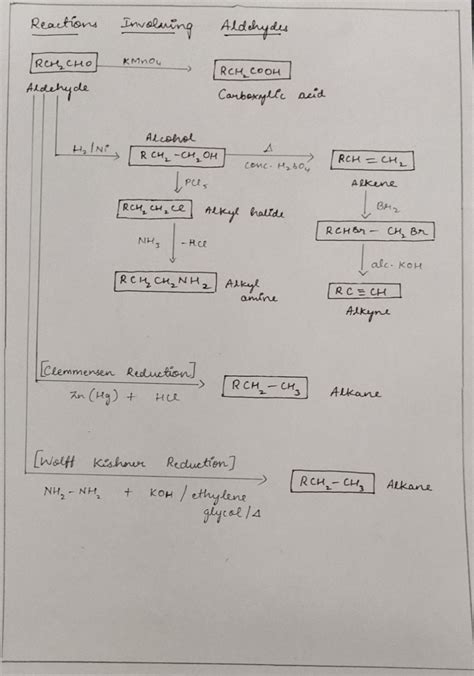 Reactions Involving Aldehydes
RCH₂CHO KMnO₄ RCH₂COOH
Aldehyde Carboxylic acid
Alcohol
H₂/Ni RCH₂-CH₂OH Δ RCH=CH₂
conc. H₂SO₄
Alkene
PCl₅
Br₂
RCH₂CH₂Cl Alkyl halide
RCHBr-CH₂Br
NH₃ -HCl
alc. KOH
RCH₂CH₂NH₂ Alkyl
amine
RC≡CH
Alkyne
[Clemmensen Reduction]
Zn(Hg) + HCl
RCH₂-CH₃ Alkane
[Wolff Kishner Reduction]
NH₂-NH₂ + KOH/ethylene
glycol/Δ
RCH₂-CH₃ Alkane